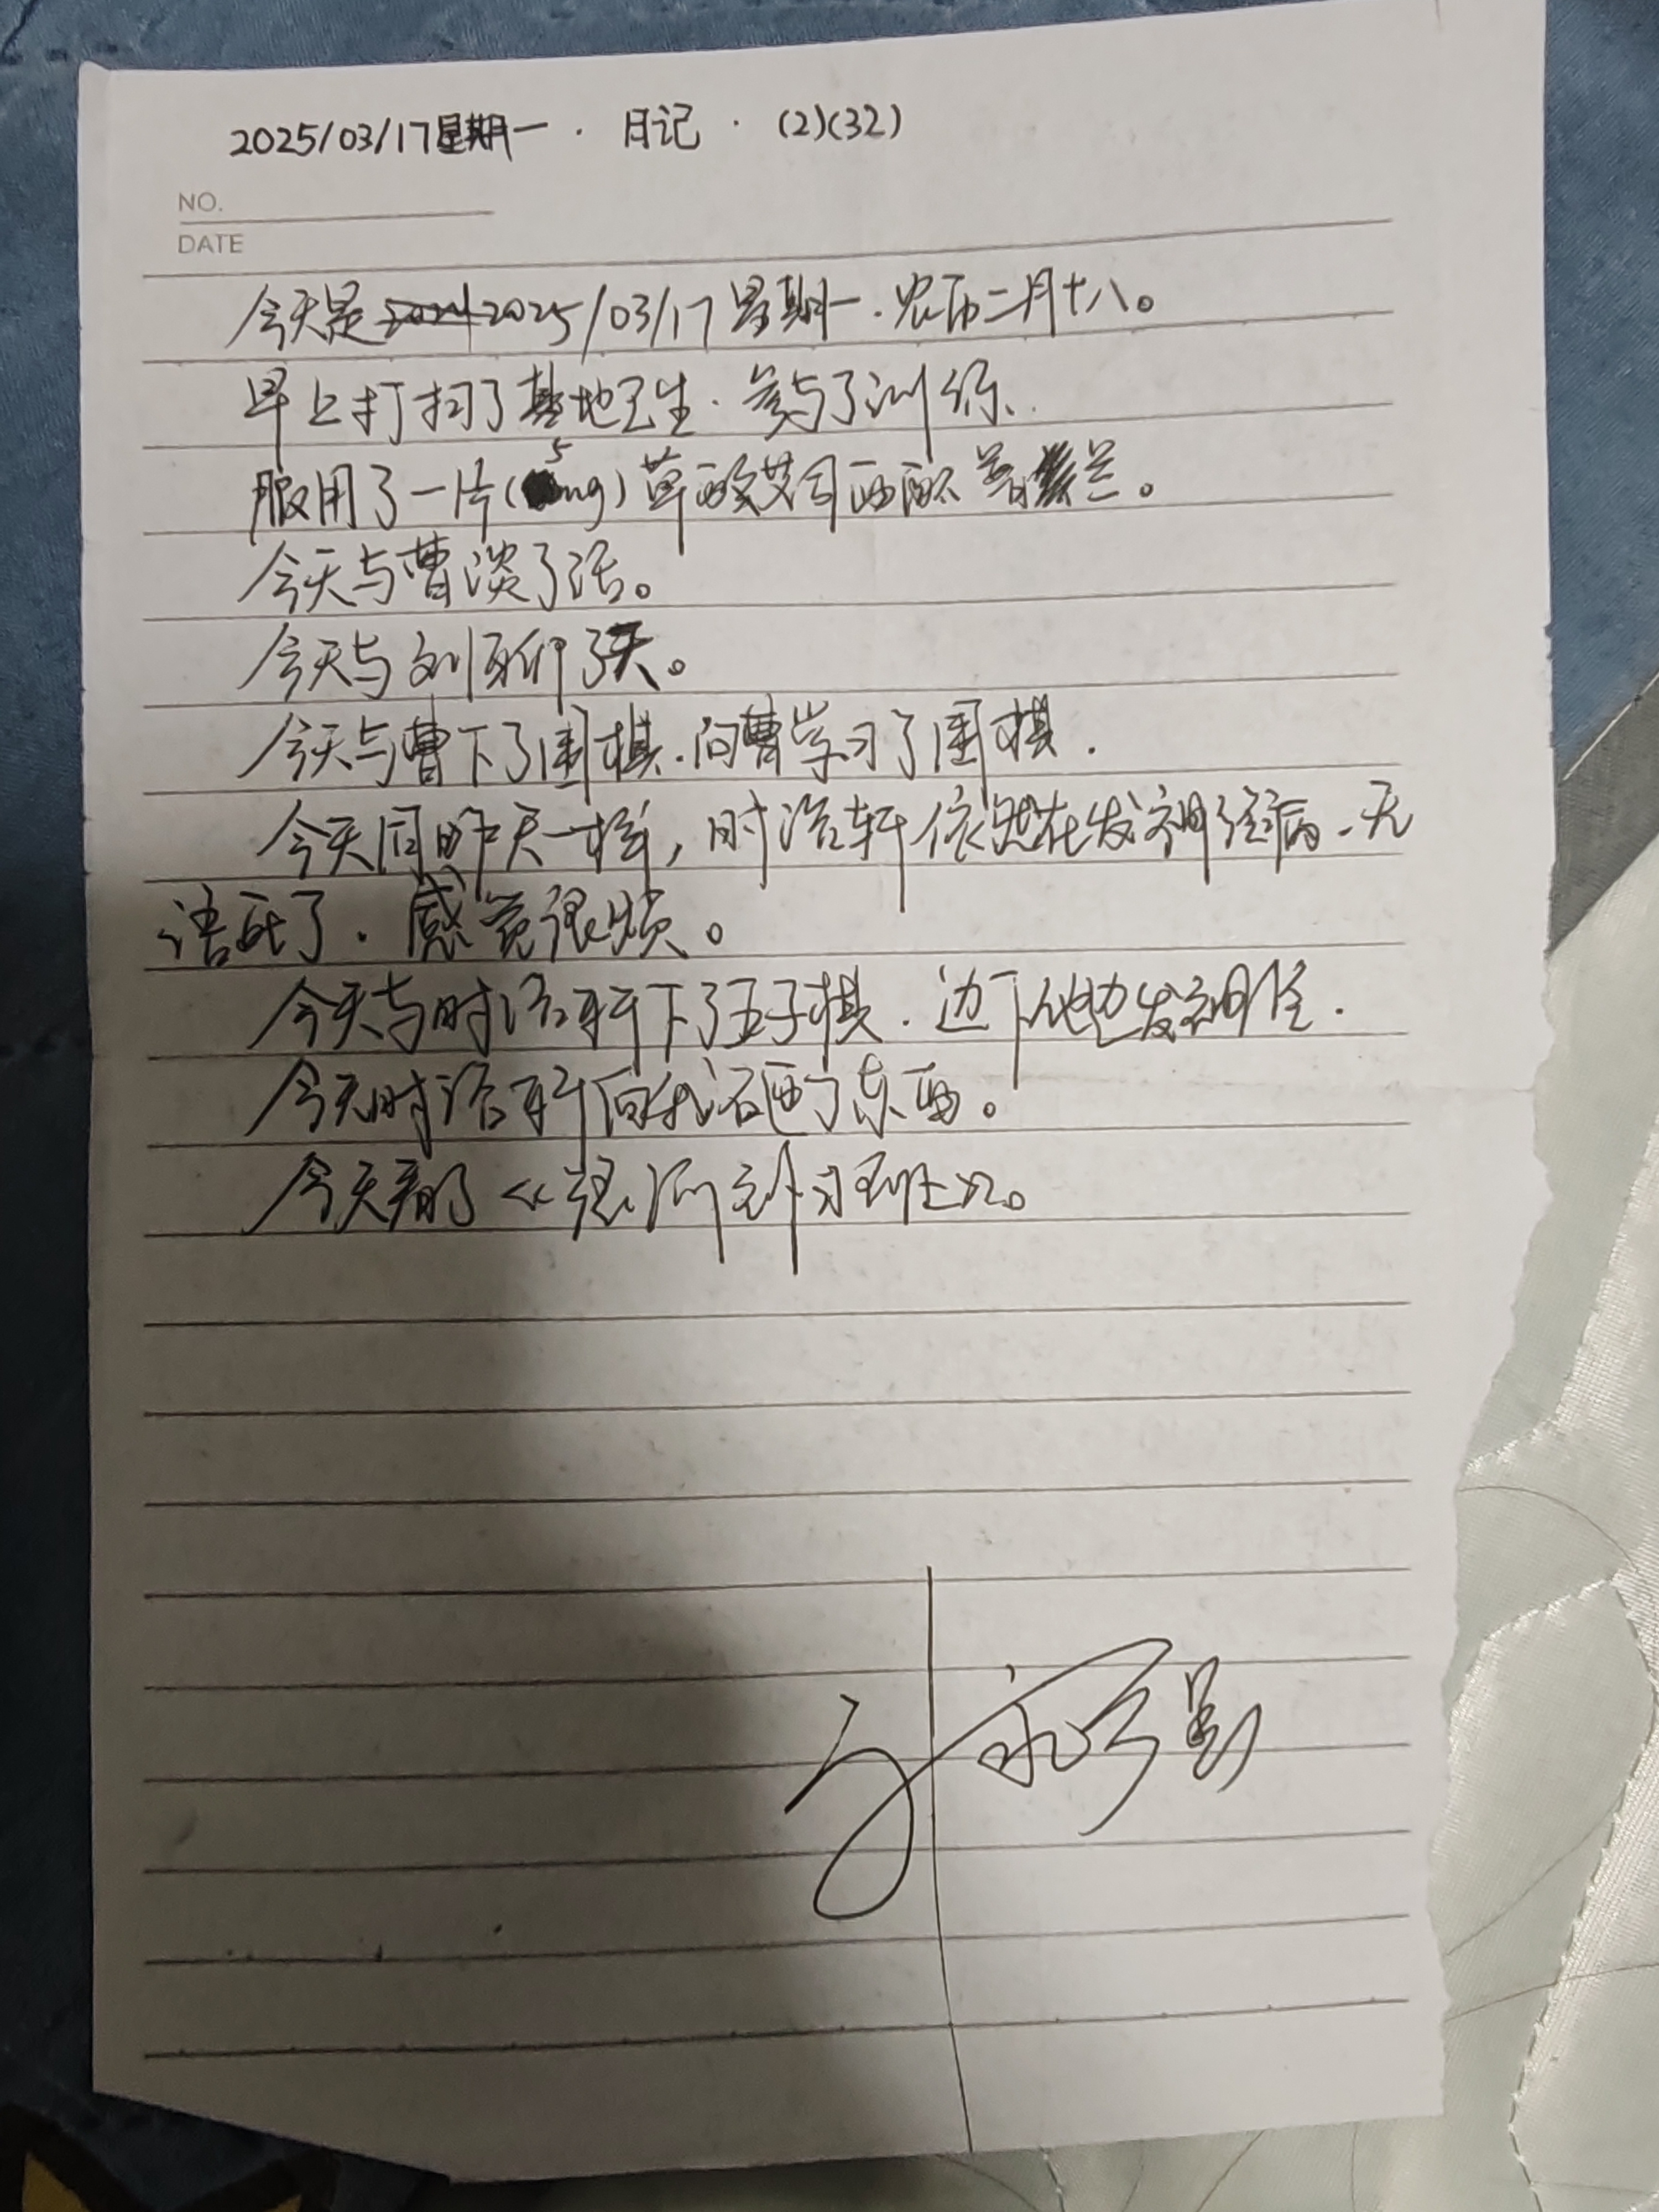 2025/03/17星期一 · 日记 · (2)(32)
NO.
DATE
今天是2025/03/17星期一.农历二月十八。
早上打扫了基地卫生.参与了训练.
服用了一片(5mg)草酸艾司西酞普兰。
今天与曹谈了话。
今天与刘聊了天。
今天与曹下了围棋.向曹学习了围棋.
今天同昨天一样,时浩轩依然在发神经病.无
语死了.感觉很烦。
今天与时浩轩下了五子棋.边下他边发神经.
今天时浩轩向我砸了东西。
今天看了《银河补习班》。